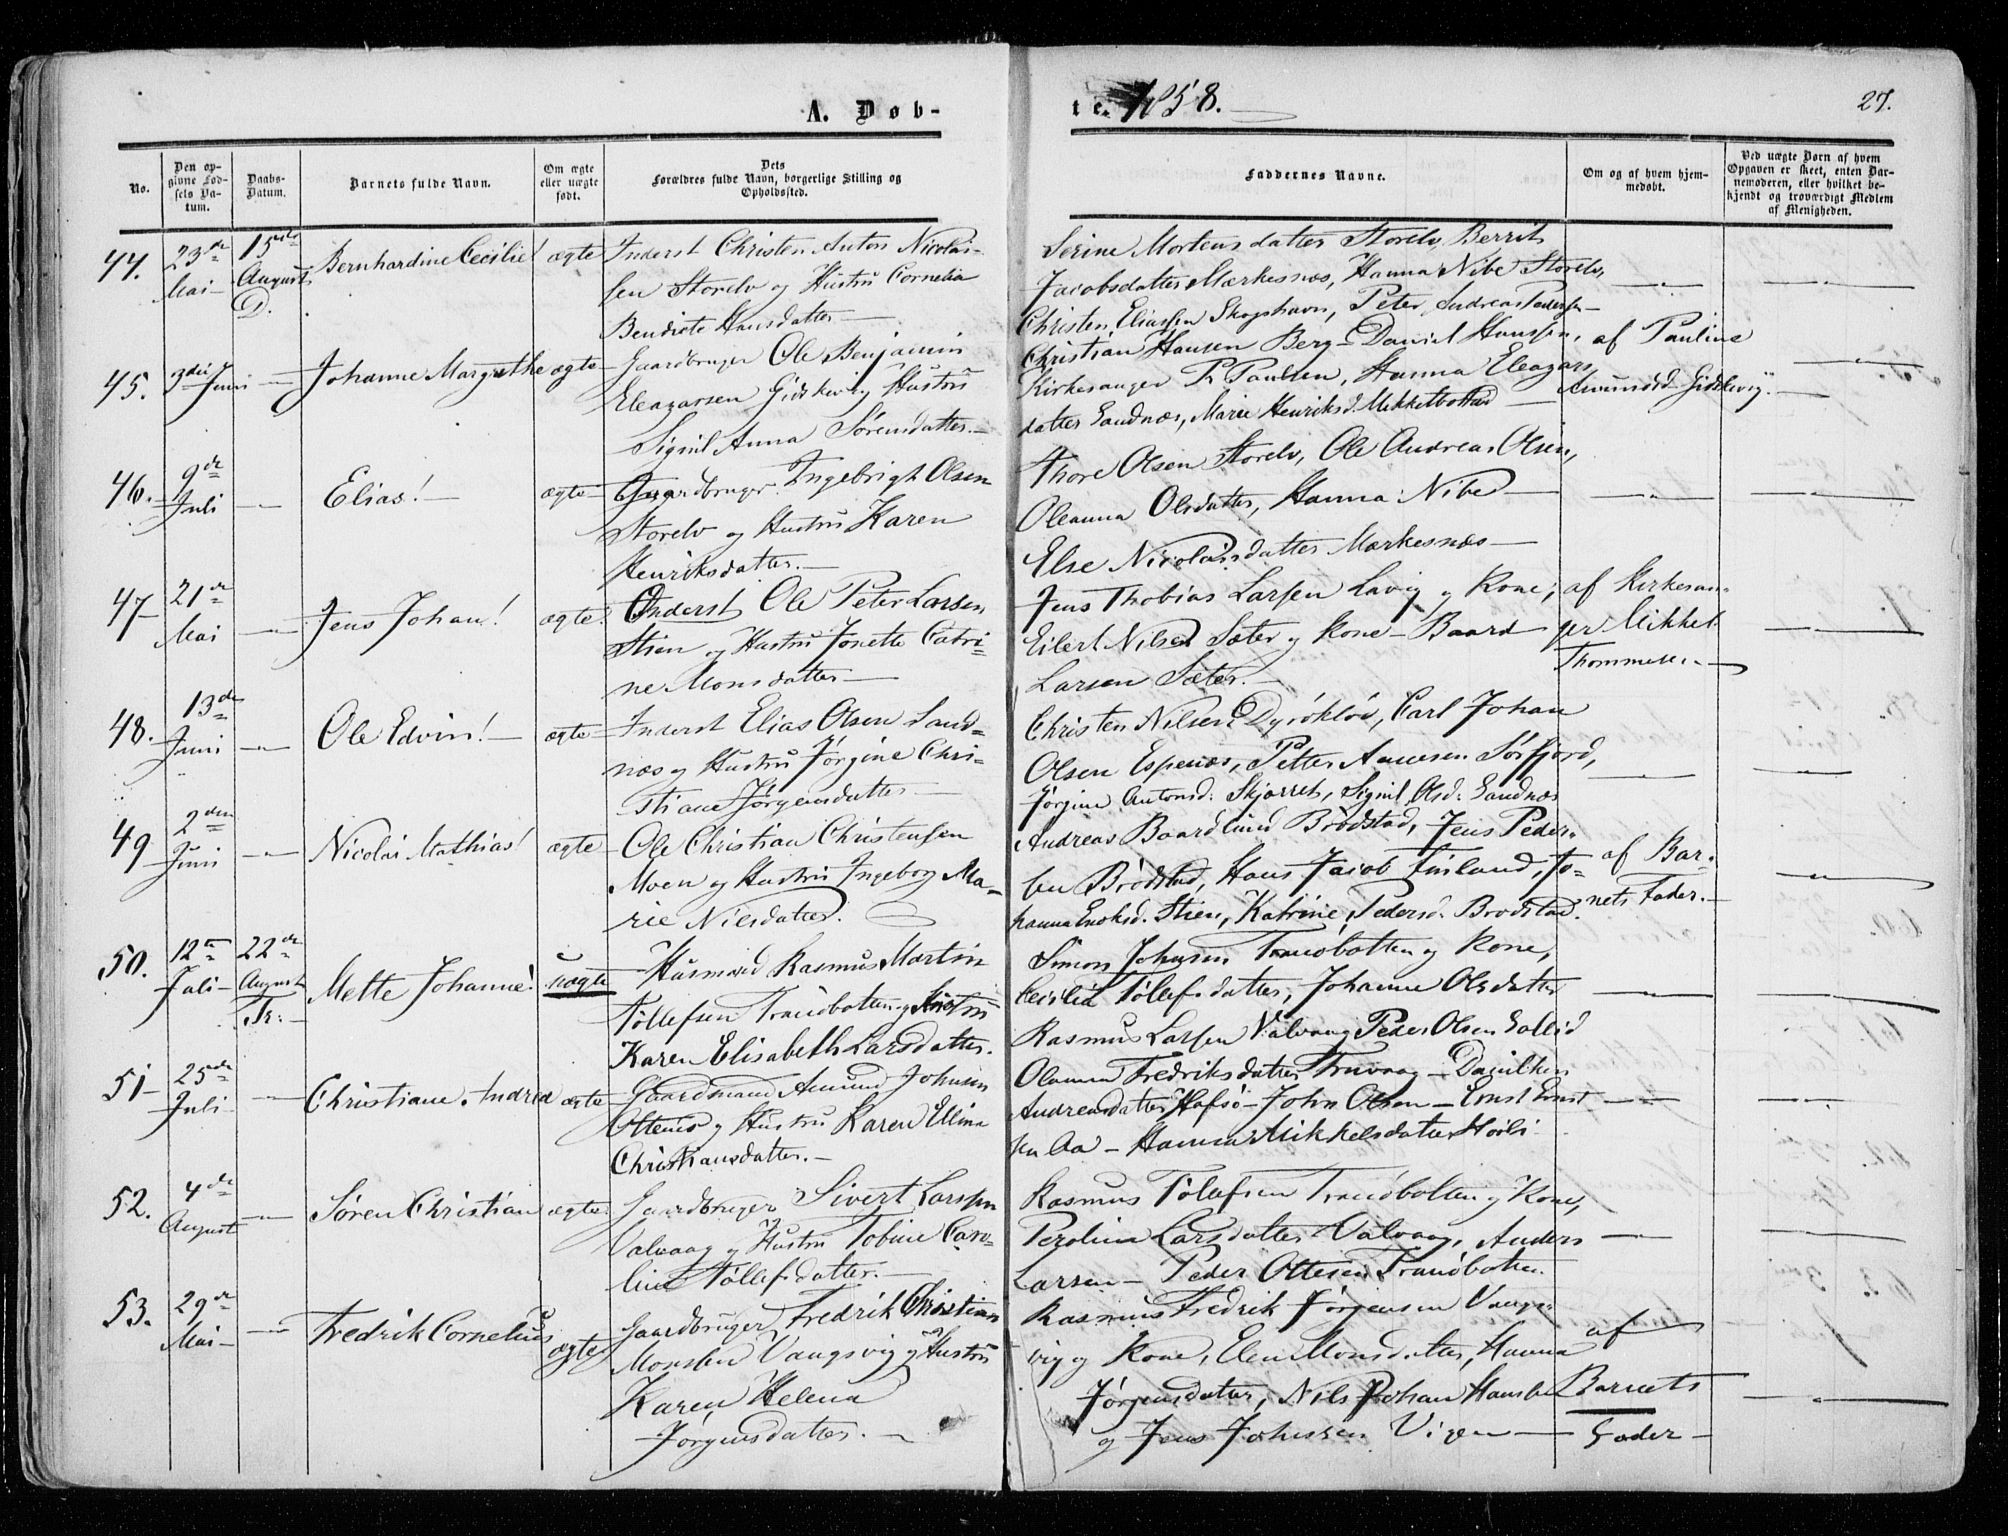 A. Døb-
te. 1858.
27.
No.
Den op-
givne Fød-
sels Da-
tum.
Daabs-
Datum.
Barnets fulde Navn.
Om ægte
eller uægte
født.
Dets
Forældres fulde Navn, borgerlige Stilling og
Opholdssted.
Faddernes Navne.
Om og af hvem hjem-
medøbt.
Ved uægte Børn af hvem
Opgaven er skeet, enten Bar-
nemoderen, eller hvilket be-
kjendt og troværdigt Medlem
af Menigheden.
44.
23de
Mai
15nde
August
D.
Bernhardine Cecilie!
ægte
Inderst Christen Anton Nicolai-
sen Storelv og Hustru Cornelia
Bendicte Hansdatter
Serine Mortensdatter Storelv, Berrit
Jacobsdatter Mærkesnæs, Hanna Nibe Storelv,
Christen Eliassen Skogshavn, Peter Andreas Pedersen
45.
3die Juni
Johanne Margrethe
ægte
Gaardbruger Ole Benjamin
Eleazarsen Gidskevig Hustru
Signil Anna Sörensdatter.
Christian Hansen Berg Daniel Hanssen,
Kirkesanger P. Paulsen, Hanna Eleazars
datter Sandnæs, Marie Henriksd. Mikkelbostad
af Pauline
Amundsd. Gidskevig
46.
9de
Juli
Elias!
ægte
Gaardbruger Ingebrigt Olsen
Storelv og Hustru Karen
Henriksdatter.
Thore Olsen Storelv, Ole Andreas Olsen,
Oleanna Olsdatter, Hanna Nibe
Else Nicolaisdatter Mærkesnæs
47
21de
Mai
Jens Johan!
ægte.
Inderst Ole Peter Larsen
Stien og Hustru Jonette Catri-
ne Monsdatter
Jens Thobias Larsen Lavig og Kone,
Eilert Nilsen Sæter og Kone Baard
Larsen Sæter.
af Kirkesan-
ger Mikkel
Thommesen
48.
13de
Juni
Ole Edvin!
ægte
Inderst Elias Olsen Sand-
næs og Hustru Jörgine Chri-
stiane Jörgensdatter
Christen Nilsen Dyröklöv, Carl Johan
Olsen Espenæs, Petter Aanesen Sörfjord,
Jörgine Antonsd: Skjærret, Signil Olsd. Sandnæs
49
2den
Juni
Nicolai Mathias!
ægte
Ole Christian Christensen
Moen og Hustru Ingeborg Ma-
rie Nilsdatter.
Andreas Baardlund Brödstad, Jens Peder-
sen Brödstad, Hans Jacob Finland, Jo-
hanna Enoksd. Stien, Katrine Pedersd. Brödstad.
af Bar-
nets Fader.
50.
12te
Juli
22de
August
Tr:
Mette Johanne!
uægte
Husmand Rasmus Martin
Töllefsen Tranöbotten og Hustru
Karen Elisabeth Larsdatter.
Simon Johnsen Tranöbotten og Kone,
Cecilia Töllefsdatter, Johanne Olsdatter
Rasmus Larsen Valvaag Peder Olsen
51
25nde
Juli
Christiane Andrea
ægte
Gaardmand Amund Johnsen
Ottenes og Hustru Karen Ellina
Christiansdatter.
Olanna Fredriksdatter Truvaag Daniel
Andreasdatter Hafsö John Olsen Ernst Ernst
sen Aa Hanna Mikkelsdatter
52.
4de
August
Sören Christian
ægte.
Gaardbruger Sivert Larssen
Valvaag og Hustru Tobine Caro-
line Töllefsdatter.
Rasmus Tölefsen Tranöbotten og Kone,
Peroline Larsdatter Valvaag, Anders
Larsen Peder Ottesen Tranöbotten.
53.
29de
Mai
Fredrik Cornelius
ægte
Gaardbruger Fredrik Christian
Monsen Vangsvig og Hustru
Karen Helena
Jörgensdatter.
Rasmus Fredrik Jörgensen Vangs-
vig og Kone, Elen Monsdatter, Hanna
Jörgensdatter, Nils Johan Hansen
og Jens Johnsen Vigen
af
Barnets
Fader